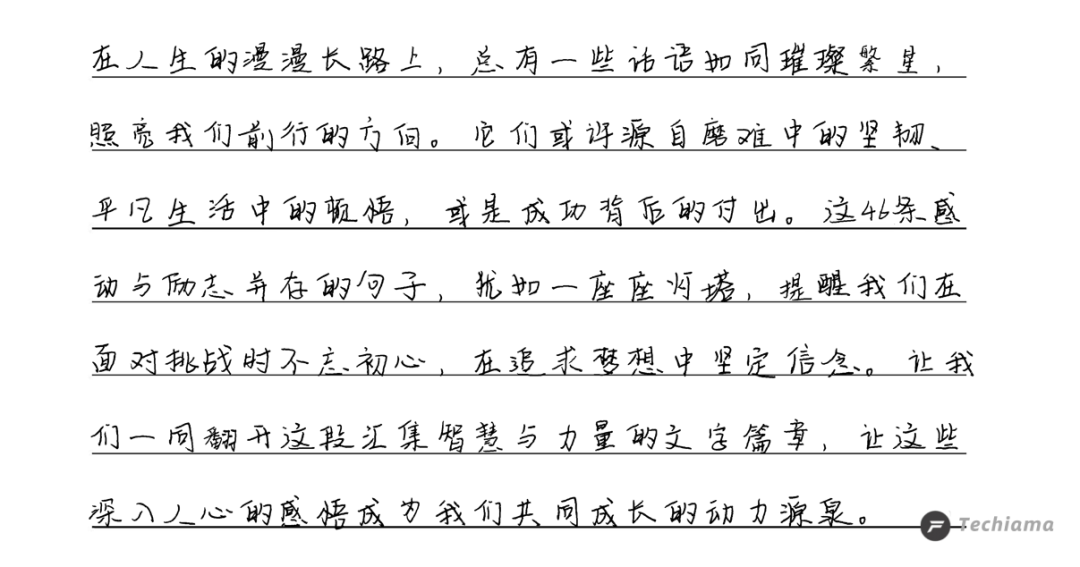 在人生的漫漫长路上，总有一些话语如同璀璨繁星，
照亮我们前行的方向。它们或许源自磨难中的坚韧、
平凡生活中的顿悟，或是成功背后的付出。这46条感
动与励志并存的句子，犹如一座座灯塔，提醒我们在
面对挑战时不忘初心，在追求梦想中坚定信念。让我
们一同翻开这段汇集智慧与力量的文字篇章，让这些
深入人心的感悟成为我们共同成长的动力源泉。
Techiama